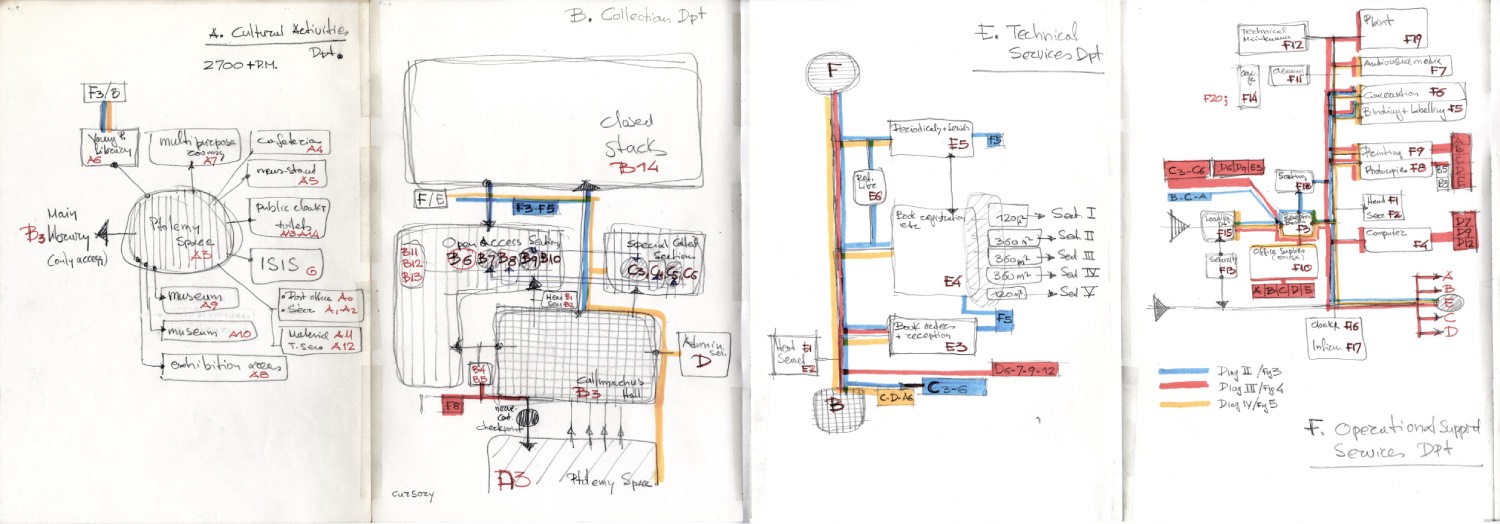 A. Cultural Activities
Dpt.
2700 + P.M.
F3/E
Young P.
Library
A6
multi purpose
rooms
A7
cafeteria
A4
news-stand
A5
Public cloaks
toilets
A13 A14
Main
B3 library
(only access)
Ptolemy
Space
A3
ISIS
G
museum
A9
museum A10
exhibition areas
A8
Post office A0
Secr A1, A2
Material A11
T. serv A12
B. Collection Dpt
closed
stacks
B14
F/E
F3-F5
Open Access
B11
B12
B13
B6 B7 B8 B9 B10
Special Collect
Section
C3, C4, C5, C6
Head B1
Secr B2
Admin.
D
B4
B5
Callimachus
Hall
B3
F8
checkpoint
A3
Ptolemy Space
cursory
E. Technical
Services Dpt
F
Periodicals + Serials
E5
F3
Ref.
Libr
E6
Book registration
etc
E4
120 m²
Sect I
360 m²
Sect II
360 m²
Sect III
360 m²
Sect IV
120 m²
Sect V
F5
Book orders
+ reception
E3
Head E1
Secret E2
D6-7-9-12
C3-6
C-D-A6
B
Plant
F19
Technical
Maintenance
F12
Audiovisual media
F7
Cleaning
F11
F20;
F14
Conservation F6
Binding + Labelling F5
Printing F9
Photocopies F8
A
B
C
D
E
B5
B3
C3-C6
B-C-A
F18
Head F1
Secr F2
Loading
F15
F3
Computer
F4
D7
D9
D12
Security
F13
Office Supplies
F10
A B C D E
A
B
E
C
D
Cloakr F16
Infirm F17
Diag II /Fig 3
Diag III/Fig 4
Diag IV/Fig 5
F. Operational Support
Services Dpt